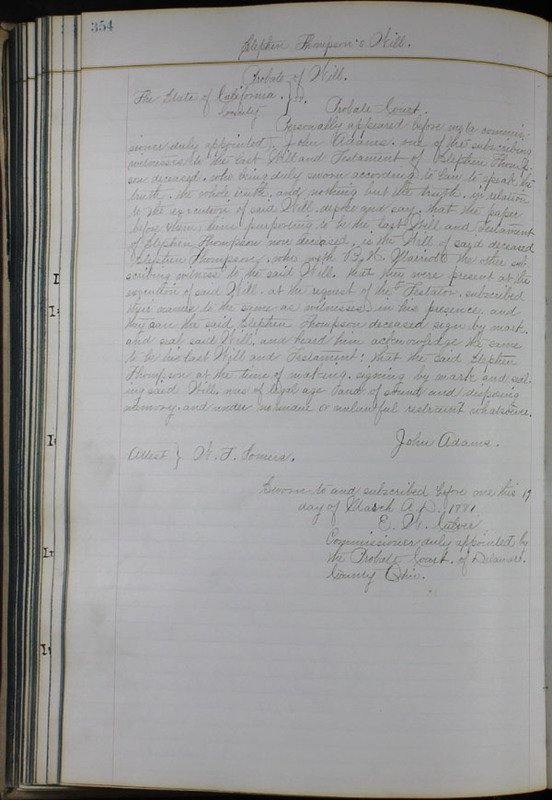 354
Stephen Thompson's Will.
Probate of Will.
The State of California. } ss.
County Probate Court.
Personally appeared before my a commis-
sioner duly appointed, John Adams, one of the subscribing
witnesses to the last Will and Testament of Stephen Thomp-
son deceased, who being duly sworn according to law to speak the
truth, the whole truth, and nothing but the truth, in relation
to the execution of said Will, depose and say, that the paper
before him, purporting to be the last Will and Testament
of Stephen Thompson now deceased, is the Will of said deceased
Stephen Thompson, who with B. R. Marriott the other sub-
scribing witness to the said Will, that they were present at the
execution of said Will, at the request of the Testator, subscribed
their names to the same as witnesses in his presence, and
they saw the said Stephen Thompson deceased sign by mark,
and seal said Will, and heard him acknowledge the same
to be his last Will and Testament: that the said Stephen
Thompson at the time of making, signing by mark and seal-
ing said Will, was of legal age and of sound and disposing
memory, and under no undue or unlawful restraint whatsoever.
John Adams.
Attest } W. F. Somers.
Sworn to and subscribed before me this 19
day of March A.D. 1881
E. W.
Commissioner duly appointed by
the Probate Court, of Delaware
County Ohio.